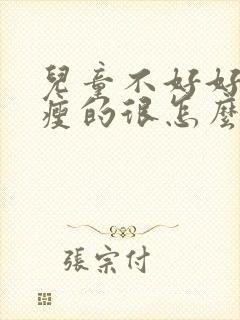 兒童不好好
瘦的很怎麼
張宗付